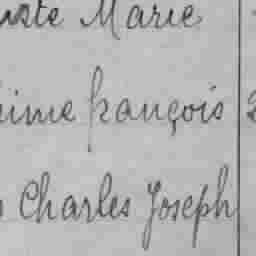 Marie
françois
Charles Joseph